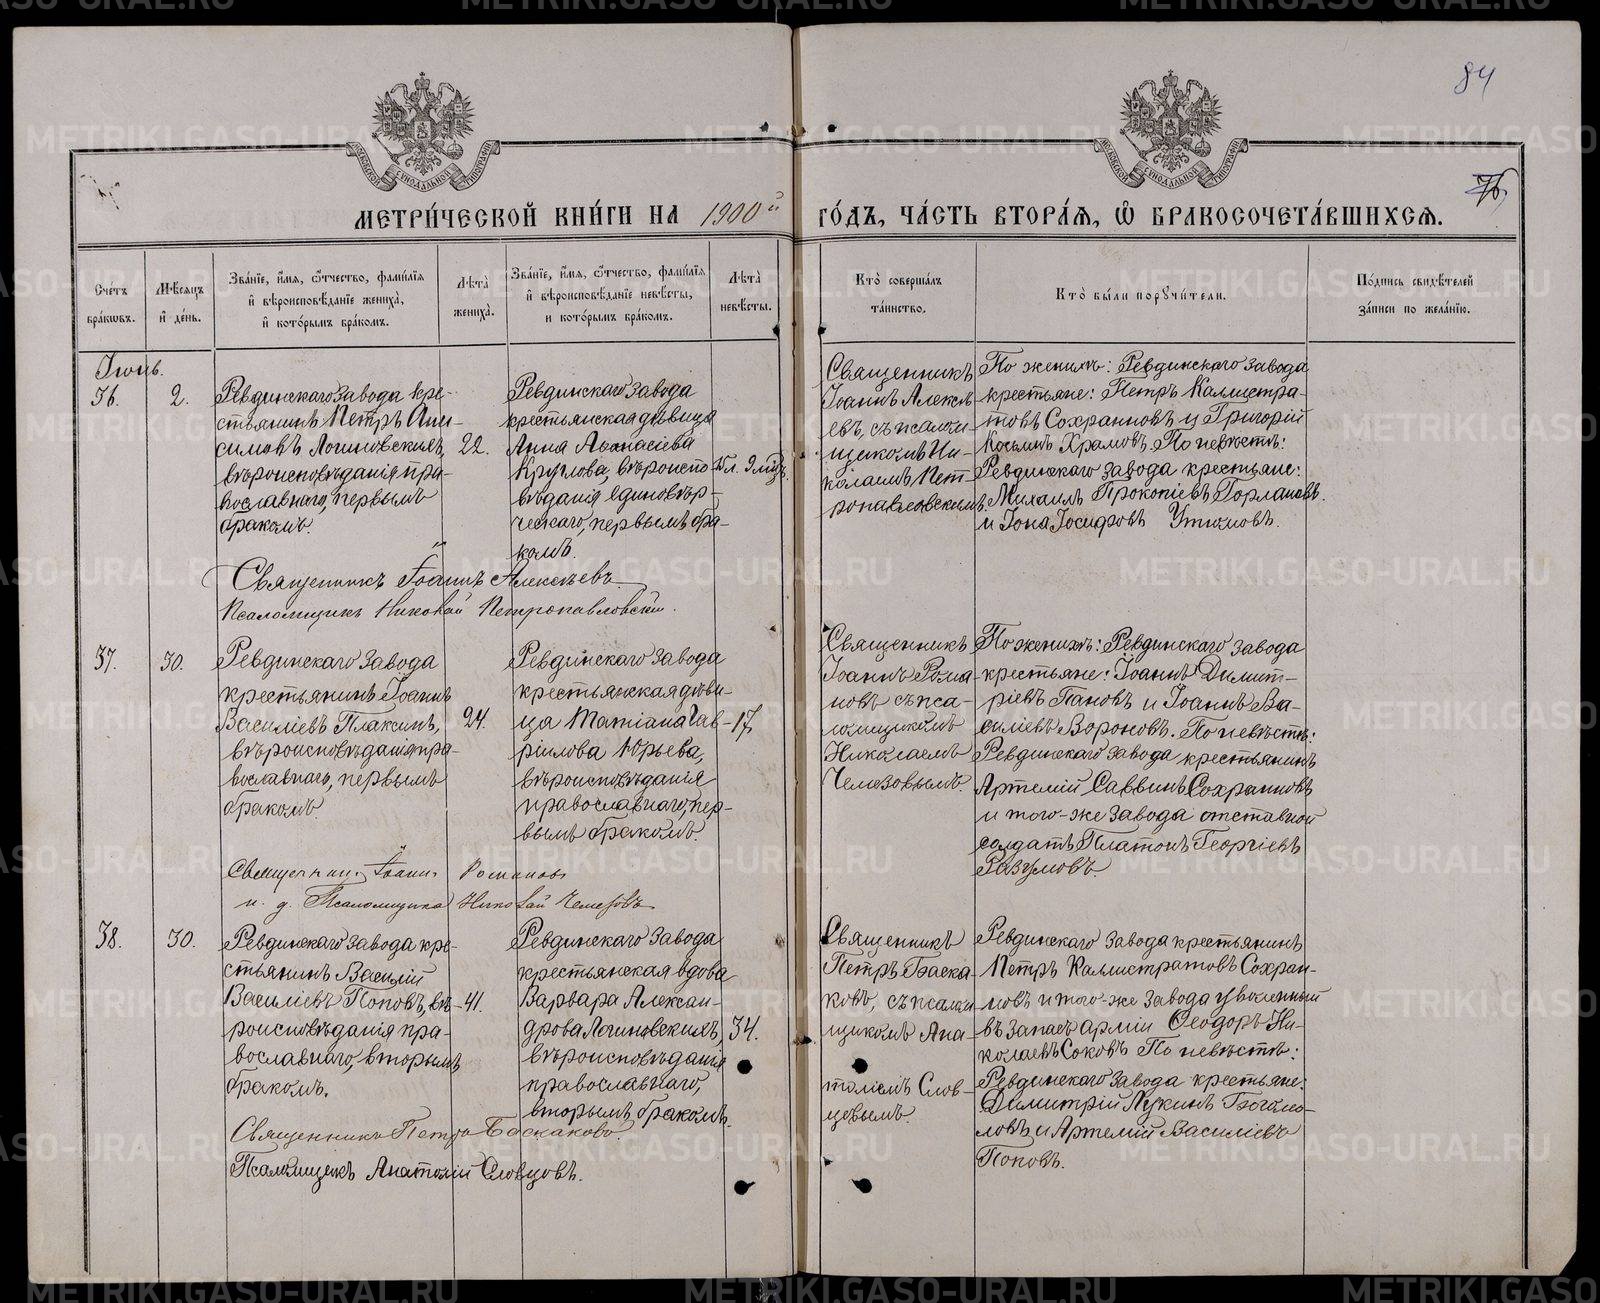 84
76
МЕТРИ́ЧЕСКОЙ КНИ́ГИ НА 1900й ГО́ДЪ, ЧА́СТЬ ВТОРА́Я, Ѽ БРАКОСОЧЕТА́ВШИХСЯ.
Счетъ бра́ковъ.
Мѣсяцъ и́ де́нь.
Зва́нїе, и́мя, ѻ́тчество, фами́лїя
и́ вѣроисповѣ́данїе жениха̀,
и́ кото́рымъ бра́комъ.
Лѣта̀ жениха̀.
Зва́нїе, и́мя, ѻ́тчество, фами́лїя
и́ вѣроисповѣ́данїе невѣ́сты,
и кото́рымъ бра́комъ.
Лѣта̀ невѣ́сты.
Кто̀ соверша́лъ
та́инство.
Кто̀ бы́ли порꙋчи́тели.
По́дпись свидѣ́телей
за́писи по жела́нїю.
Іюнь.
36.
2.
Ревдинскаго завода кре-
стьянинъ Петръ Они-
симовъ Логиновскихъ,
вѣроисповѣданія пра-
вославнаго, первымъ
бракомъ.
22.
Ревдинскаго завода
крестьянская дѣвица
Анна Аѳанасіева
Круглова, вѣроиспо-
вѣданія единовѣр-
ческаго, первымъ бра-
комъ.
15 л. 9 мѣс.
Священникъ
Іоаннъ Алексѣ-
евъ, съ псалом-
щикомъ Ни-
колаемъ Пет-
ропавловскимъ.
По женихѣ: Ревдинскаго завода
крестьяне: Петръ Каллистра-
товъ Сохранновъ и Григорій
Космынъ Храмовъ. По невѣстѣ:
Ревдинскаго завода крестьяне:
Михаилъ Прокопіевъ Горлановъ
и Іона Іосифовъ Утюмовъ.
Священникъ Іоаннъ Алексѣевъ
Псаломщикъ Николай Петропавловскій.
37.
30.
Ревдинскаго завода
крестьянинъ Іоаннъ
Василіевъ Плаксинъ,
вѣроисповѣданія пра-
вославнаго, первымъ
бракомъ.
24.
Ревдинскаго завода
крестьянская дѣви-
ца Татіана Гав-
ріилова Юрьева,
вѣроисповѣданія
православнаго, пер-
вымъ бракомъ.
17.
Священникъ
Іоаннъ Рома-
новъ съ пса-
ломщикомъ
Николаемъ
По женихѣ: Ревдинскаго завода
крестьяне: Іоаннъ Димит-
ріевъ Пановъ и Іоаннъ Ва-
силіевъ Вороновъ. По невѣстѣ:
Ревдинскаго завода крестьянинъ
Артемій Саввинъ Сохранновъ
и того-же завода отставной
солдатъ Платонъ Георгіевъ
Разумовъ.
Священник. Іоаннъ Романовъ
и. д. Псаломщика Николай
38.
30.
Ревдинскаго завода кре-
стьянинъ Василій
Василіевъ Поповъ, вѣ-
роисповѣданія пра-
вославнаго, вторымъ
бракомъ.
41.
Ревдинскаго завода
крестьянская вдова
Варвара Алексан-
дрова Логиновскихъ,
вѣроисповѣданія
православнаго,
вторымъ бракомъ.
34.
Священникъ
Петръ Баска-
ковъ, съ псалом-
щикомъ Ана-
толіемъ Слов-
цовымъ.
Ревдинскаго завода крестьянинъ
Петръ Каллистратовъ Сохран-
новъ и того-же завода уволенный
въ запасъ арміи Ѳеодоръ Ни-
колаевъ Соковъ По невѣстѣ:
Ревдинскаго завода крестьяне:
Димитрій Лукинъ Богомо-
ловъ и Артемій Василіевъ
Поповъ.
Священникъ Петръ Баскаковъ.
Псаломщикъ Анатолій Словцовъ.
METRIKI.GASO-URAL.RU